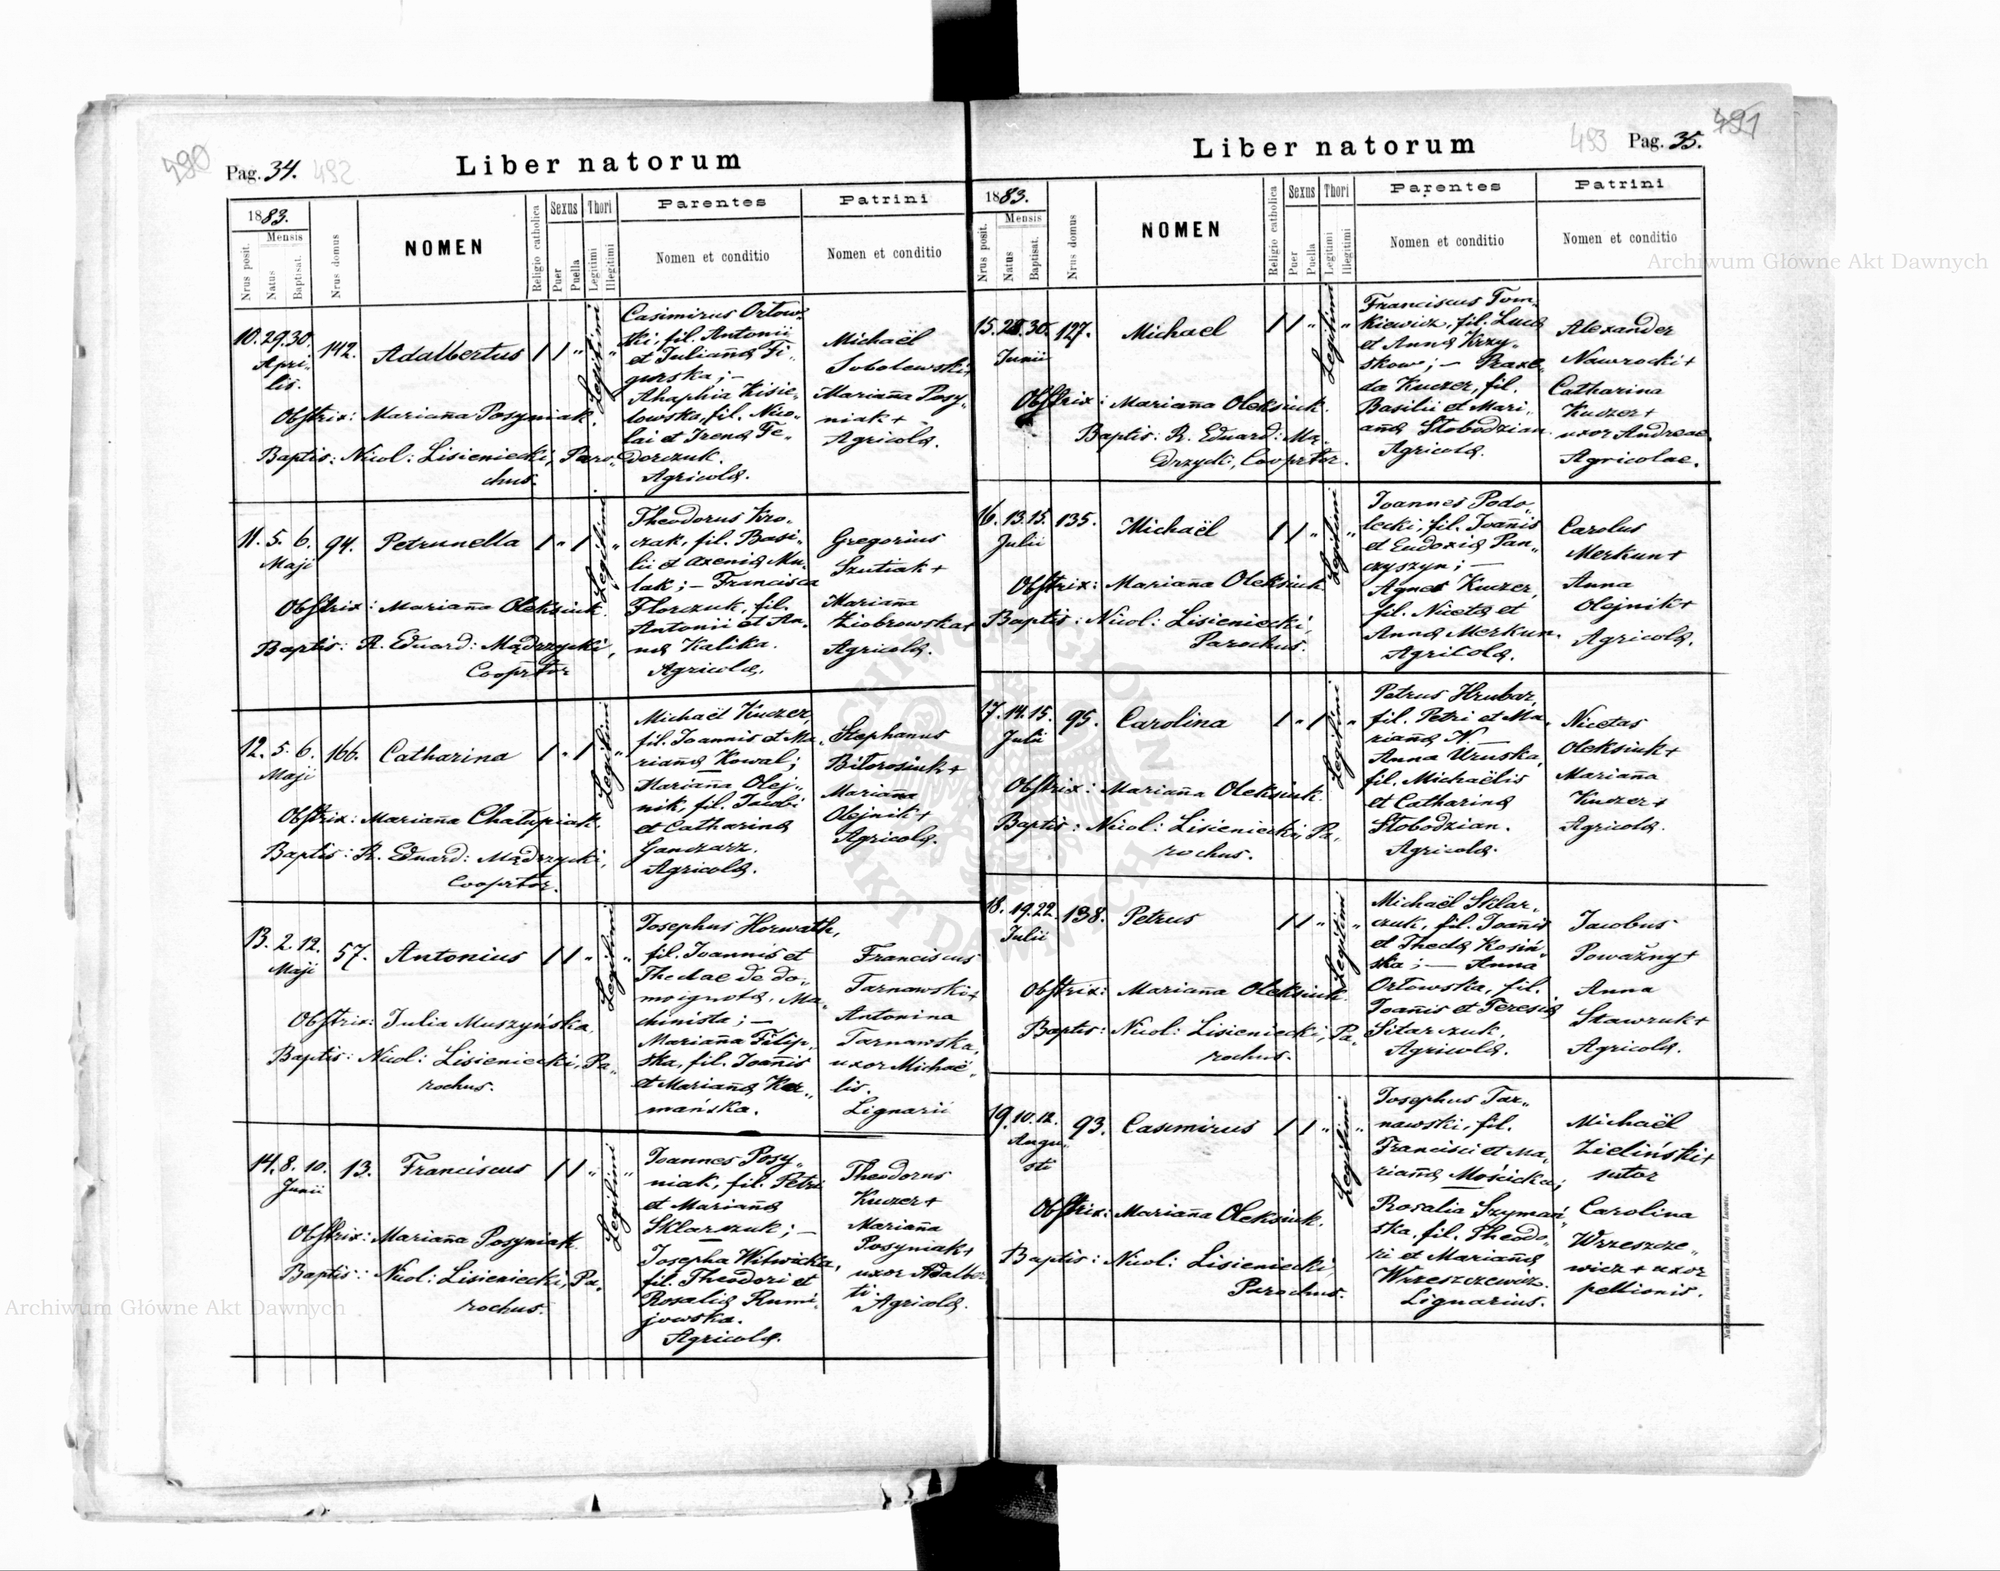 490
Pag. 34.
492
Liber natorum
1883.
Mensis
Nrus posit.
Natus
Baptisat.
Nrus domus
NOMEN
Religio catholica
Sexus
Puer
Puella
Thori
Legitimi
Illegitimi
Parentes
Nomen et conditio
Patrini
Nomen et conditio
10. 29. 30. Apri-
lis.
142.
Adalbertus
Legitimi
Obstrix: Marianna Posyniak.
Baptis: Nicol: Lisieniecki, Paro-
chus.
Casimirus Orłow-
ski, fil. Antonii
et Julianna Fi-
gurska; —
Ahaphia Kisie-
lowska, fil. Nico-
lai et Irena Fe-
dorczuk.
Agricola.
Michaël
Sobolewski+
Marianna Posy-
niak+
Agricola.
11. 5. 6.
Maji
94.
Petrunella
Legitimi
Obstrix: Marianna Oleksiuk.
Baptis: R. Eduard: Mądrzycki,
Cooprtor
Theodorus Kro-
czak, fil. Basi-
lii et Axenia Mu-
lak; — Francisca
Florczuk, fil.
Antonii et An-
na Kalika.
Agricola.
Gregorius
Szutiak+
Marianna
Ziobrowska+
Agricola.
12. 5. 6.
Maji
166.
Catharina
Legitimi
Obstrix: Marianna Chałupiak.
Baptis: R. Eduard: Mądrzycki,
Cooprtor.
Michaël Kuczer,
fil. Joannis et Ma-
rianna Kowal;
Marianna Olej-
nik, fil. Jacobi
et Catharina
Ganczarz.
Agricola.
Stephanus
Bitorosiuk+
Marianna
Olejnik+
Agricola.
13. 2. 12.
Maji
57.
Antonius
Legitimi
Obstrix: Julia Muszyńska.
Baptis: Nicol: Lisieniecki, Pa-
rochus.
Josephus Horwath,
fil. Joannis et
Theclae de do-
mo ignota, Ma-
chinista; —
Marianna Filip-
ska, fil. Joannis
et Marianna Ker-
mańska.
Franciscus
Tarnawski+
Antonina
Tarnawska,
uxor Michaë-
lis.
Lignarii
14. 8. 10.
Junii
13.
Franciscus
Legitimi
Obstrix: Marianna Posyniak.
Baptis: Nicol: Lisieniecki, Pa-
rochus.
Joannes Posy-
niak, fil. Petri
et Marianna
Sklarczuk; —
Josepha Witwicka,
fil. Theodori et
Rosalia Rumi-
jowska.
Agricola.
Theodorus
Kuczer+
Marianna
Posyniak+
uxor Adalber-
ti.
Agricola.
491
493
Pag. 35.
Liber natorum
1883.
Mensis
Nrus posit.
Natus
Baptisat.
Nrus domus
NOMEN
Religio catholica
Sexus
Puer
Puella
Thori
Legitimi
Illegitimi
Parentes
Nomen et conditio
Patrini
Nomen et conditio
15. 28. 30.
Junii
127.
Michael
Legitimi
Obstrix: Marianna Oleksiuk.
Baptis: R. Eduard: Mą-
drzycki, Cooprtor.
Franciscus Tom-
kiewicz, fil. Luca
et Anna Krzy-
skow; — Praxe-
da Kuczer, fil.
Basilii et Mari-
anna Słobodzian.
Agricola.
Alexander
Nawrocki+
Catharina
Kuczer+
uxor Andreae.
Agricolae.
16. 13. 15.
Julii
135.
Michaël
Legitimi
Obstrix: Marianna Oleksiuk
Baptis: Nicol: Lisieniecki,
Parochus.
Joannes Podo-
lecki, fil. Joannis
et Eudoxia Pan-
czyszyn; —
Agnes Kuczer,
fil. Niceta et
Anna Merkun.
Agricola.
Carolus
Merkun+
Anna
Olejnik+
Agricola.
17. 14. 15.
Julii
95.
Carolina
Legitimi
Obstrix: Marianna Oleksiuk.
Baptis: Nicol: Lisieniecki, Pa-
rochus.
Petrus Hrubar,
fil. Petri et Ma-
rianna N.—
Anna Uruska,
fil. Michaëlis
et Catharina
Słobodzian.
Agricola.
Nicetas
Oleksiuk+
Marianna
Kuczer+
Agricola.
18. 19. 22.
Julii
138.
Petrus
Legitimi
Obstrix: Marianna Oleksiuk.
Baptis: Nicol: Lisieniecki, Pa-
rochus.
Michaël Sklar-
czuk, fil. Joannis
et Thecla Kosiń-
ska; — Anna
Orłowska, fil.
Joannis et Teresia
Sitarczuk.
Agricola.
Jacobus
Poważny+
Anna
Stawruk+
Agricola.
19. 10. 12.
Augu-
sti
93.
Casimirus
Legitimi
Obstrix: Marianna Oleksiuk.
Baptis: Nicol: Lisieniecki,
Parochus.
Josephus Tar-
nawski, fil.
Francisci et Ma-
rianna Mościcka;
Rosalia Szymań-
ska, fil. Theodo-
ri et Marianna
Wrzeszczewicz.
Lignarius.
Michaël
Zieliński+
sutor
Carolina
Wrzeszcze-
wicz+ uxor
pellionis.
Nakładem Drukarni Ludowej we Lwowie.
Archiwum Główne Akt Dawnych
Archiwum Główne Akt Dawnych
ARCHIWUM GŁÓWNE AKT DAWNYCH